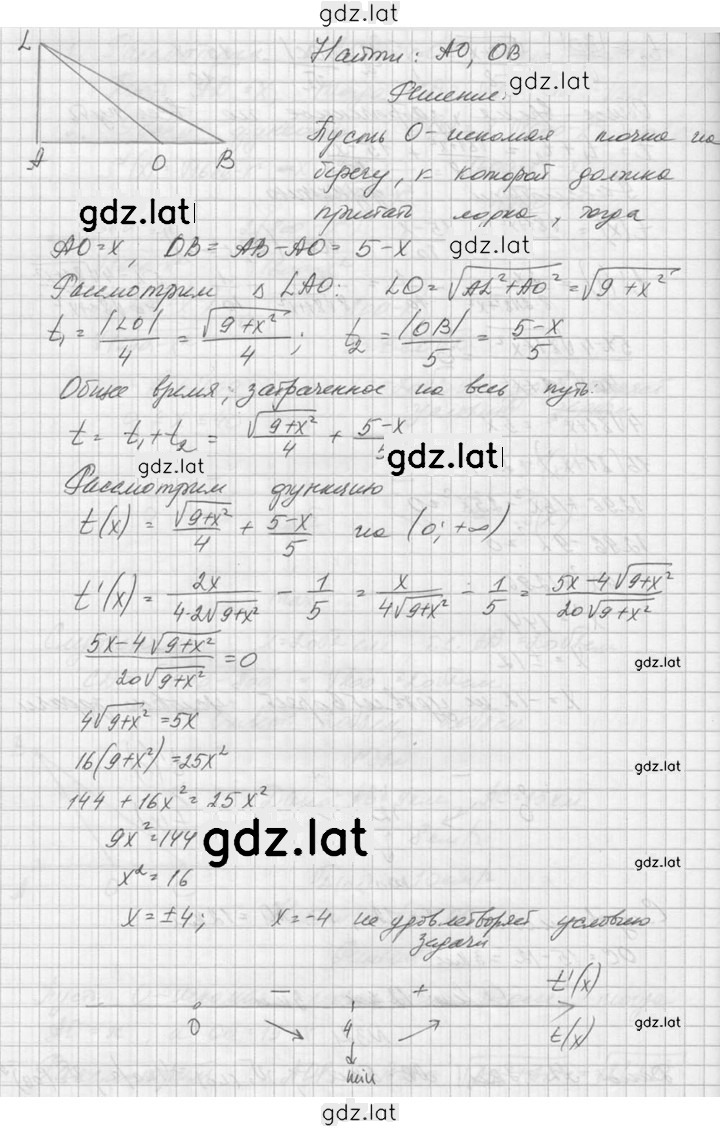 gdz.lat
L
Найти: AO, OB
gdz.lat
Решение:
A O B
Пусть O - искомая точка на
берегу, к которой должна
gdz.lat
пристать лодка, тогда
AO=x, OB = AB-AO = 5-x
gdz.lat
Рассмотрим Δ LAO: LO = √(AL²+AO²) = √(9+x²)
t₁ = |LO|/4 = √(9+x²)/4; t₂ = |OB|/5 = (5-x)/5
Общее время, затраченное на весь путь:
t = t₁+t₂ = √(9+x²)/4 + (5-x)/5
gdz.lat
gdz.lat
Рассмотрим функцию
t(x) = √(9+x²)/4 + (5-x)/5 на (0; +∞)
t'(x) = 2x/(4·2√(9+x²)) - 1/5 = x/(4√(9+x²)) - 1/5 = (5x-4√(9+x²))/(20√(9+x²))
(5x-4√(9+x²))/(20√(9+x²)) = 0
gdz.lat
4√(9+x²) = 5x
16(9+x²) = 25x²
gdz.lat
144 + 16x² = 25x²
9x² = 144
gdz.lat
gdz.lat
x² = 16
x = ±4; x = -4 не удовлетворяет условию
задачи
- + t'(x)
0 4 t(x)
gdz.lat
min
gdz.lat